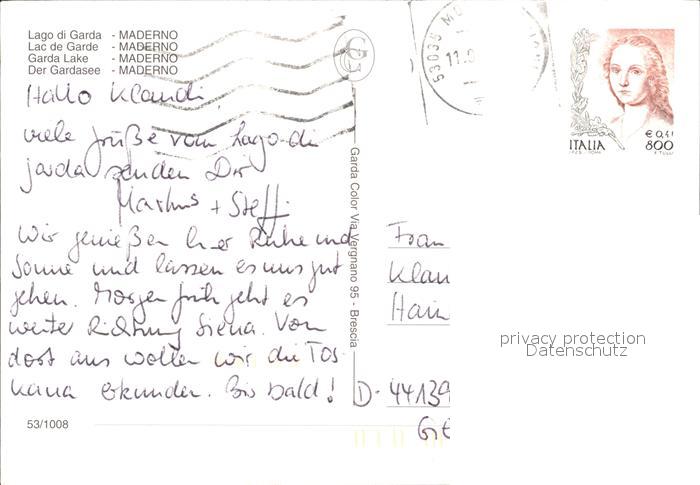 Lago di Garda - MADERNO
Lac de Garde - MADERNO
Garda Lake - MADERNO
Der Gardasee - MADERNO
Hallo Klaudi,
viele Grüße vom Lago-di
garda senden Dir
Markus + Steffi
Wir genießen hier Ruhe und
Sonne und lassen es uns gut
gehen. Morgen früh geht es
weiter Richtung Siena. Von
dort aus wollen wir die Tos-
kana erkunden. Bis bald!
53/1008
Garda Color Via Vergnano 95 - Brescia
53035 MO
11.
ITALIA
€ 0,41
800
Frau
Klau
Hain
D-44139
privacy protection
Datenschutz